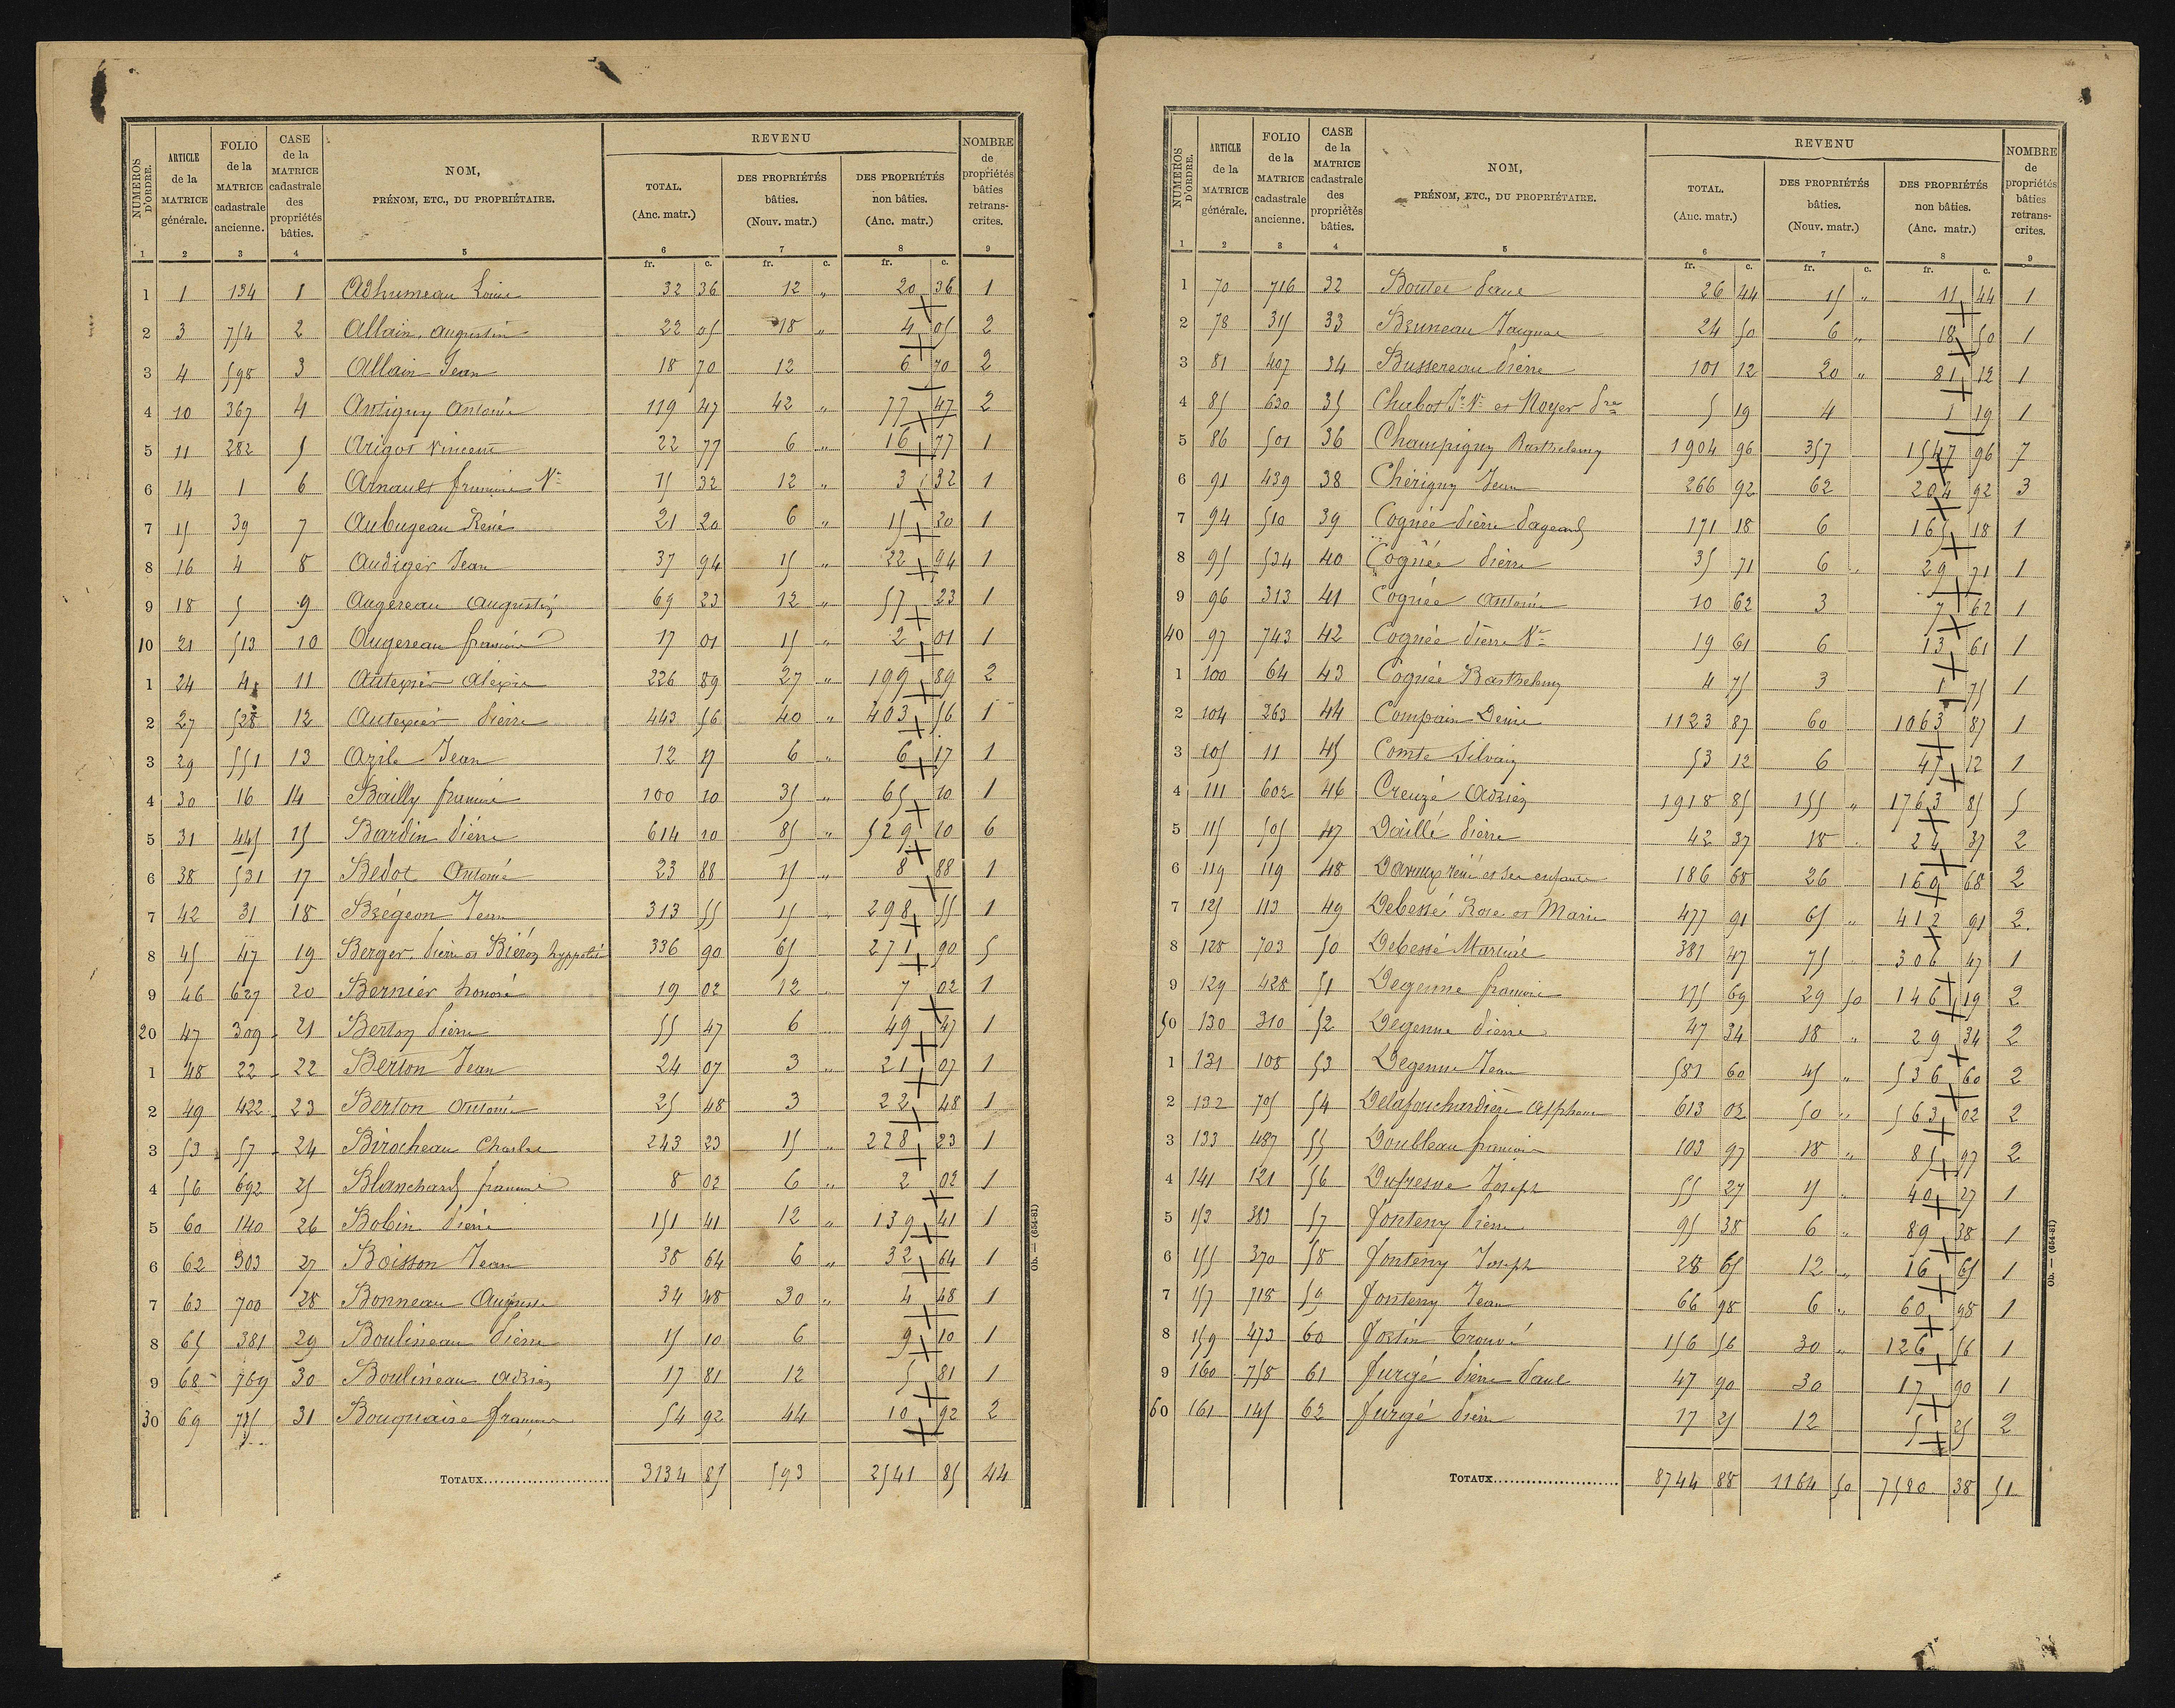 NUMÉROS D'ORDRE. | ARTICLE de la MATRICE générale. | FOLIO de la MATRICE cadastrale ancienne. | CASE de la MATRICE cadastrale des propriétés bâties. | NOM, PRÉNOM, ETC., DU PROPRIÉTAIRE. | REVENU TOTAL. (Anc. matr.) | DES PROPRIÉTÉS bâties. (Nouv. matr.) | DES PROPRIÉTÉS non bâties. (Anc. matr.) | NOMBRE de propriétés bâties retranscrites.
1 2 3 4 5 6 7 8 9
fr. c. fr. c. fr. c.
1 1 134 1 Adhumeau Louis 32 36 12 " 20 36 1
2 3 754 2 Allain Augustin 22 05 18 " 4 05 2
3 4 598 3 Allain Jean 18 70 12 6 70 2
4 10 367 4 Antigny Antoine 119 47 42 " 77 47 2
5 11 282 5 Arigot Vincent 22 77 6 " 16 77 1
6 14 1 6 Arnault françois Ve 15 32 12 " 3 32 1
7 15 39 7 Aubugeau René 21 20 6 " 15 20 1
8 16 4 8 Audiger Jean 37 94 15 " 22 94 1
9 18 5 9 Augereau Augustin 69 23 12 " 57 23 1
10 21 513 10 Augereau françois 17 01 15 " 2 01 1
1 24 4 11 Autexier Alexis 226 89 27 " 199 89 2
2 27 528 12 Autexier Pierre 443 56 40 " 403 56 1
3 29 551 13 Azile Jean 12 17 6 " 6 17 1
4 30 16 14 Bailly françois 100 10 35 " 65 10 1
5 31 445 15 Bardin Pierre 614 10 85 " 529 10 6
6 38 531 17 Bedot Antoine 23 88 15 " 8 88 1
7 42 31 18 Brégeon Jean 313 55 15 " 298 55 1
8 45 47 19 Berger Pierre et Biéron hyppolite 336 90 65 271 90 5
9 46 627 20 Bernier honoré 19 02 12 " 7 02 1
20 47 309 21 Berton Pierre 55 47 6 49 47 1
1 48 22 22 Berton Jean 24 07 3 " 21 07 1
2 49 422 23 Berton Antoine 25 48 3 22 48 1
3 53 57 24 Birocheau Charles 243 23 15 " 228 23 1
4 56 692 25 Blanchard françois 8 02 6 " 2 02 1
5 60 140 26 Bobin Pierre 151 41 12 " 139 41 1
6 62 303 27 Boisson Jean 38 64 6 " 32 64 1
7 63 700 28 Bonneau Auguste 34 48 30 " 4 48 1
8 65 381 29 Boulineau Pierre 15 10 6 9 10 1
9 68 769 30 Boulineau Adrien 17 81 12 5 81 1
30 69 735 31 Bouquaise françois 54 92 44 10 92 2
TOTAUX 3134 85 593 2541 85 44
Ob. — (654-81)
NUMÉROS D'ORDRE. | ARTICLE de la MATRICE générale. | FOLIO de la MATRICE cadastrale ancienne. | CASE de la MATRICE cadastrale des propriétés bâties. | NOM, PRÉNOM, ETC., DU PROPRIÉTAIRE. | REVENU TOTAL. (Anc. matr.) | DES PROPRIÉTÉS bâties. (Nouv. matr.) | DES PROPRIÉTÉS non bâties. (Anc. matr.) | NOMBRE de propriétés bâties retranscrites.
1 2 3 4 5 6 7 8 9
fr. c. fr. c. fr. c.
1 70 716 32 Boutet Paul 26 44 15 " 11 44 1
2 78 315 33 Bruneau Jacques 24 50 6 " 18 50 1
3 81 407 34 Bussereau Pierre 101 12 20 " 81 12 1
4 85 630 35 Chabot Ve et Noyer 5 19 4 1 19 1
5 86 501 36 Champigny Barthelemy 1904 96 357 1547 96 7
6 91 439 38 Chérigny Jean 266 92 62 204 92 3
7 94 510 39 Cognée Pierre Pageard 171 18 6 165 18 1
8 95 534 40 Cognée Pierre 35 71 6 29 71 1
9 96 313 41 Cognée Antoine 10 62 3 7 62 1
40 97 743 42 Cognée Pierre Ve 19 61 6 13 61 1
1 100 64 43 Cognée Barthelemy 4 75 3 1 75 1
2 104 263 44 Compain Denis 1123 87 60 1063 87 1
3 105 11 45 Comte Silvain 53 12 6 47 12 1
4 111 602 46 Creuzé Adrien 1918 85 155 " 1763 85 5
5 115 505 47 Daillé Pierre 42 37 18 24 37 2
6 119 119 48 Daveux rené et ses enfants 186 68 26 160 68 2
7 125 113 49 Debessé Rose et Marie 477 91 65 " 412 91 2
8 128 703 50 Debessé Martial 381 47 75 306 47 1
9 129 428 51 Degenne françois 175 69 29 50 146 19 2
50 130 310 52 Degenne Pierre 47 34 18 " 29 34 2
1 131 108 53 Degenne Jean 581 60 45 " 536 60 2
2 132 705 54 Delafouchardière Alphonse 613 02 50 " 563 02 2
3 133 487 55 Doubleau françois 103 97 18 " 85 97 2
4 141 121 56 Dufresne Joseph 55 27 15 " 40 27 1
5 153 383 57 fonteny Pierre 95 38 6 " 89 38 1
6 155 370 58 fonteny Joseph 28 65 12 " 16 65 1
7 157 718 59 fonteny Jean 66 98 6 " 60 98 1
8 159 473 60 fortin trouvé 156 56 30 " 126 56 1
9 160 758 61 furgé Pierre Paul 47 90 30 17 90 1
60 161 145 62 furgé Pierre 17 25 12 5 25 2
TOTAUX 8744 88 1164 50 7580 38 51
Ob. — (654-81)